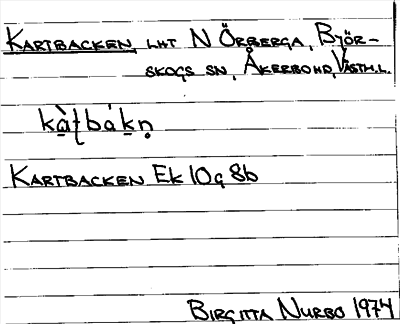 KARTBACKEN, LHT N ÖRBERGA, BJÖR-
SKOGS SN, ÅKERBO HD, VÄSTM.L.
kà̱ʈbáḵṇ
KARTBACKEN Ek 10g 8b
BIRGITTA NURBO 1974